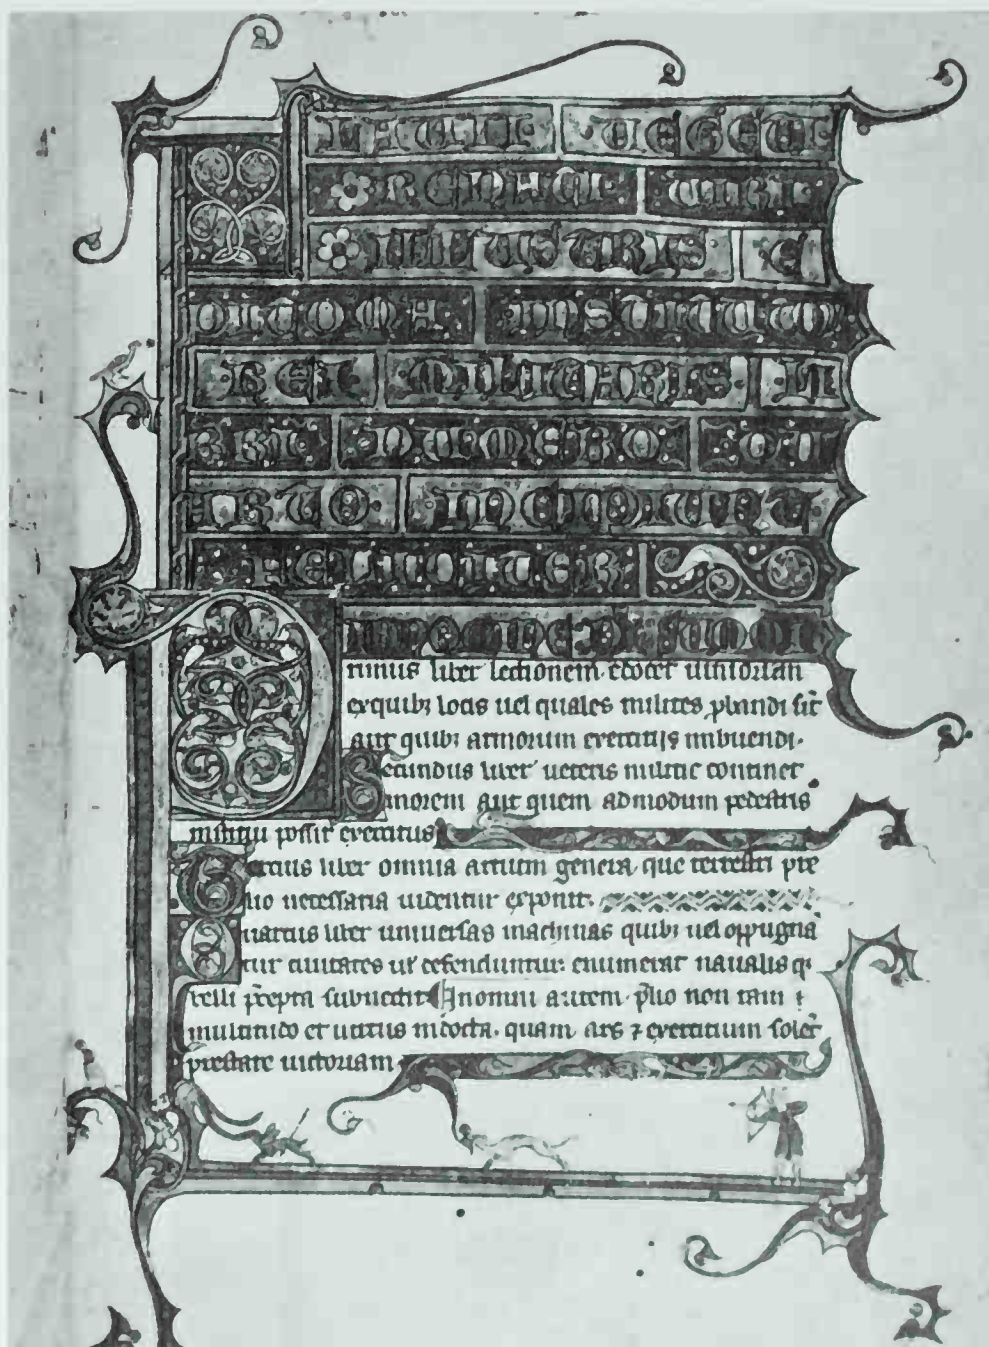 FLAUII UEGETII
RENATI UIRI
ILLUSTRIS E
PITOMA INSTITUTO
REI MILITARIS LI
BRI NUMERO QUA
TUOR INCIPIUNT
FELICITER
rimus liber lectionem edocet iuniorum
ex quibꝫ locis uel quales milites ꝓbandi sīt
aut quibꝫ armorum exercitiis imbuendi.
Secundus liber ueteris militie continet
morem aut quem admodum pedestris
institui possit exercitus
Tertius liber omnia artium genera que terrestri pre
lio necessaria uidentur exponit.
Quartus liber uniuersas machinas quibꝫ uel oppugnā
tur ciuitates uel defenduntur. enumerat naualis qꝫ
belli p̄cepta subnectit In omni autem p̄lio non tam
multitudo et uirtus indocta. quam ars ⁊ exercitium solet
prestare uictoriam